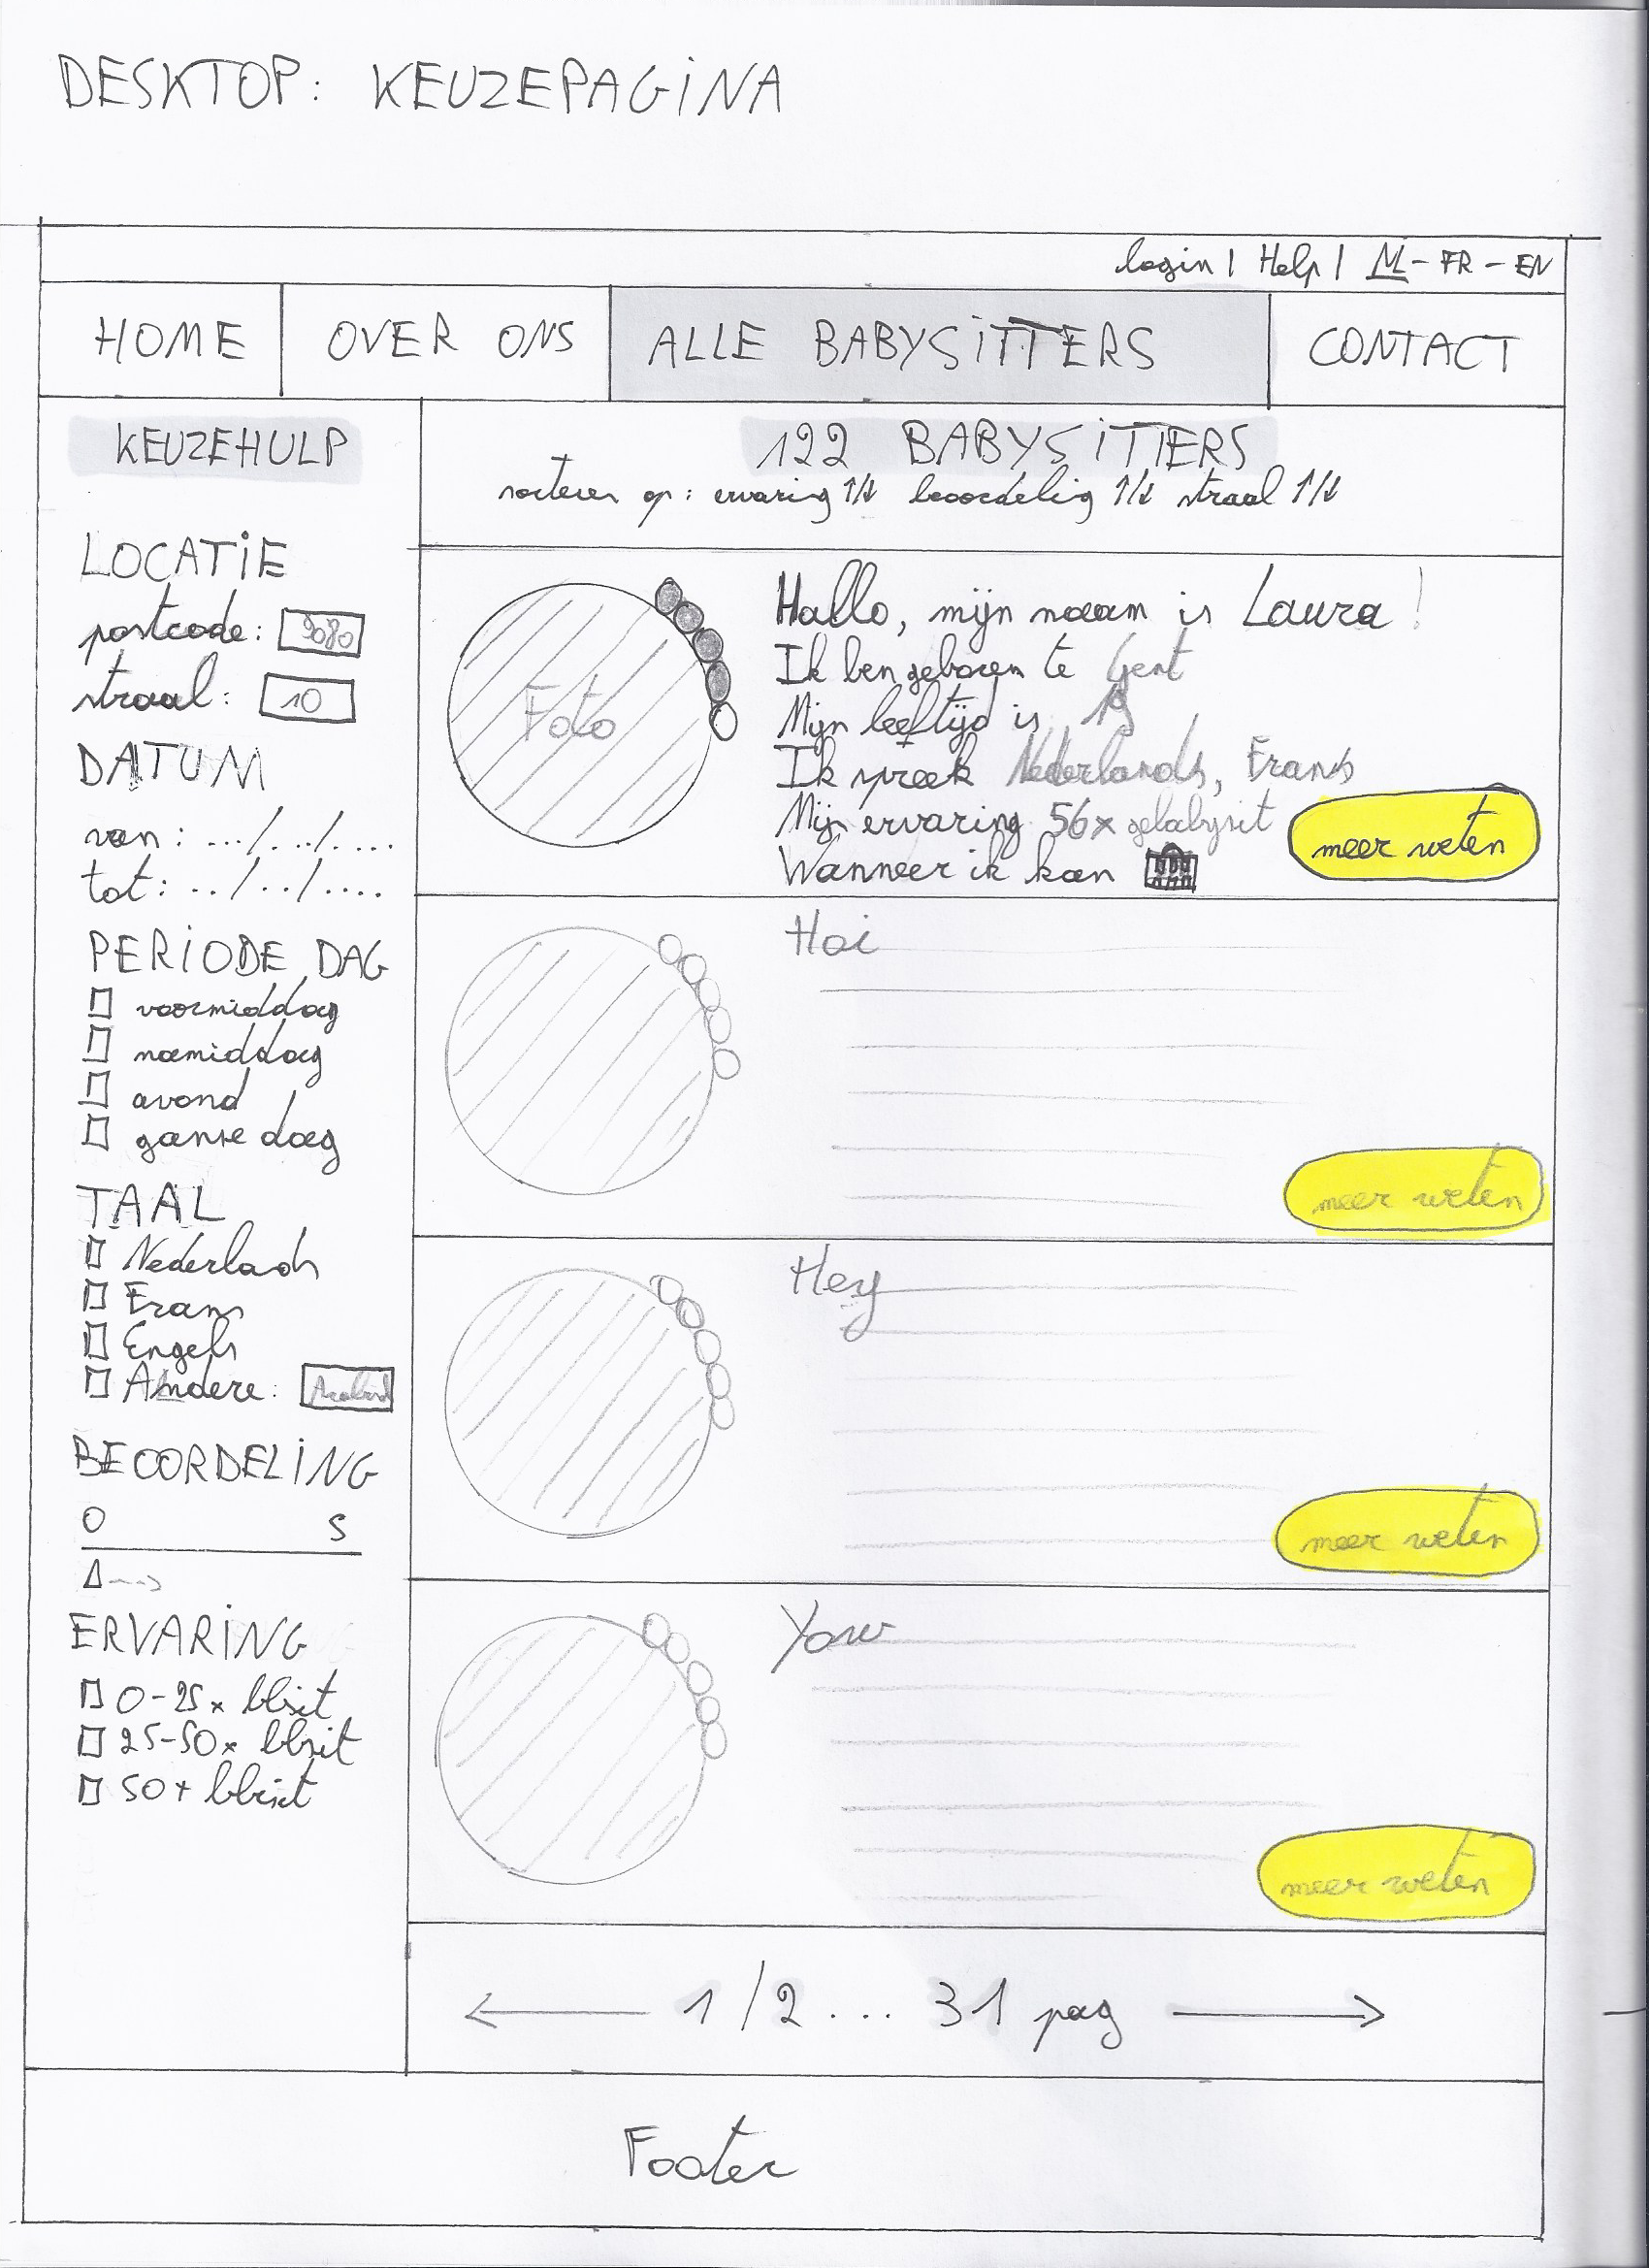 DESKTOP: KEUZEPAGINA
login | Help | NL - FR - EN
HOME
OVER ONS
ALLE BABYSITTERS
CONTACT
KEUZEHULP
LOCATIE
postcode: 9080
straal: 10
DATUM
van: .../.../....
tot: ../../....
PERIODE DAG
voormiddag
namiddag
avond
ganse dag
TAAL
Nederlands
Frans
Engels
Andere:
BEOORDELING
0 5
ERVARING
0-25x bbsit
25-50x bbsit
50+ bbsit
122 BABYSITTERS
sorteren op: ervaring ↑/↓ beoordelig ↑/↓ straal ↑/↓
Foto
Hallo, mijn naam is Laura!
Ik ben geboren te Gent
Mijn leeftijd is 19
Ik spreek Nederlands, Frans
Mijn ervaring 56x gebabysit
Wanneer ik kan
meer weten
Hoi
meer weten
Hey
meer weten
Yow
meer weten
← 1/2 ... 31 pag →
Footer